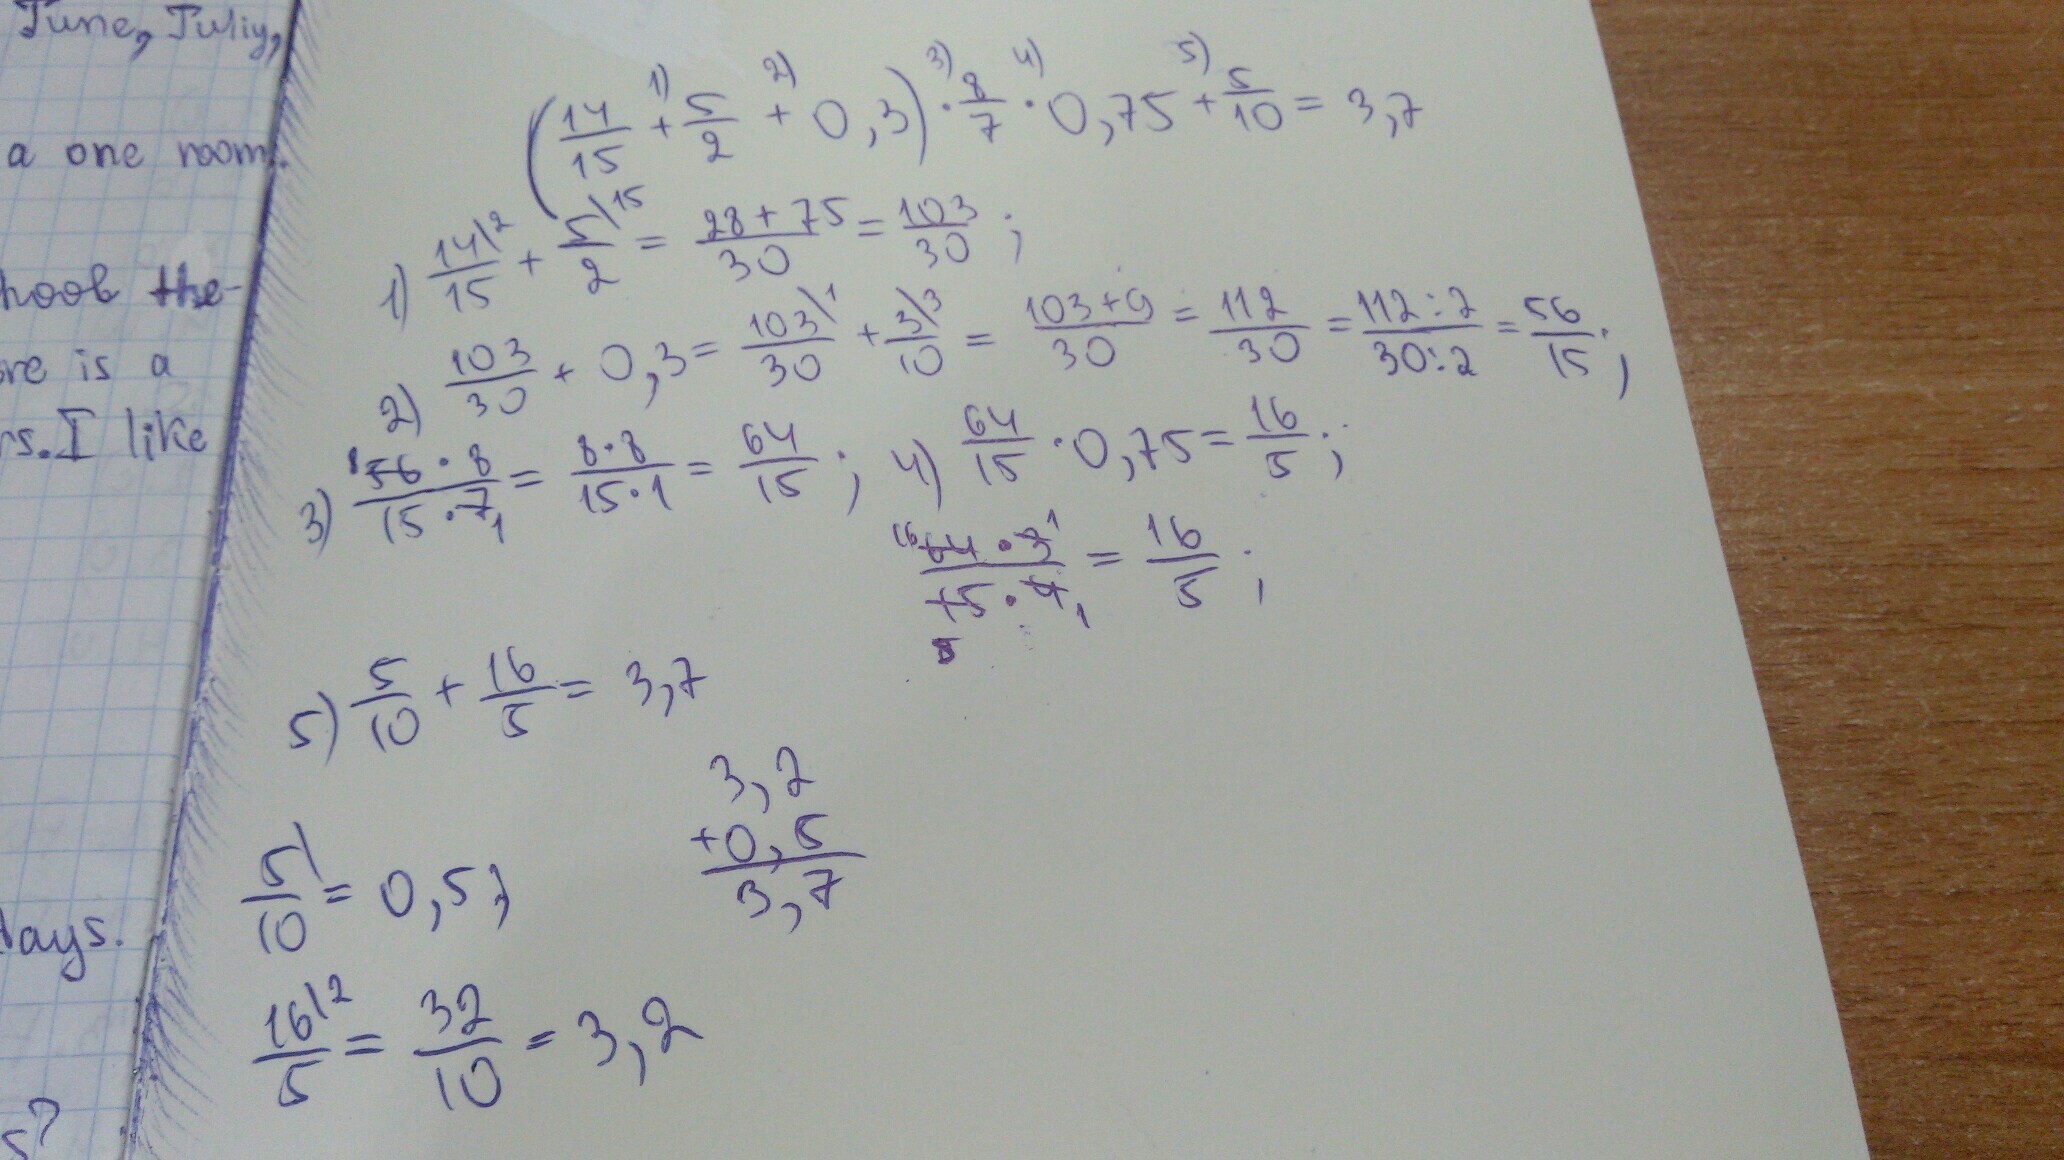 June, Juliy,
a one room.
the
re is a
rs. I like
days.
s?
(14/15 + 5/2 + 0,3) · 8/7 · 0,75 + 5/10 = 3,7
1) 2) 3) 4) 5)
1) 14\2/15 + 5\15/2 = 28+75/30 = 103/30;
2) 103/30 + 0,3 = 103\1/30 + 3\3/10 = 103+9/30 = 112/30 = 112:2/30:2 = 56/15;
3) 56·8/15·7 = 8·8/15·1 = 64/15; 4) 64/15 · 0,75 = 16/5;
64·3/15·4 = 16/5;
5) 5/10 + 16/5 = 3,7
3,2
+0,5
3,7
5\/10 = 0,5;
16\2/5 = 32/10 = 3,2